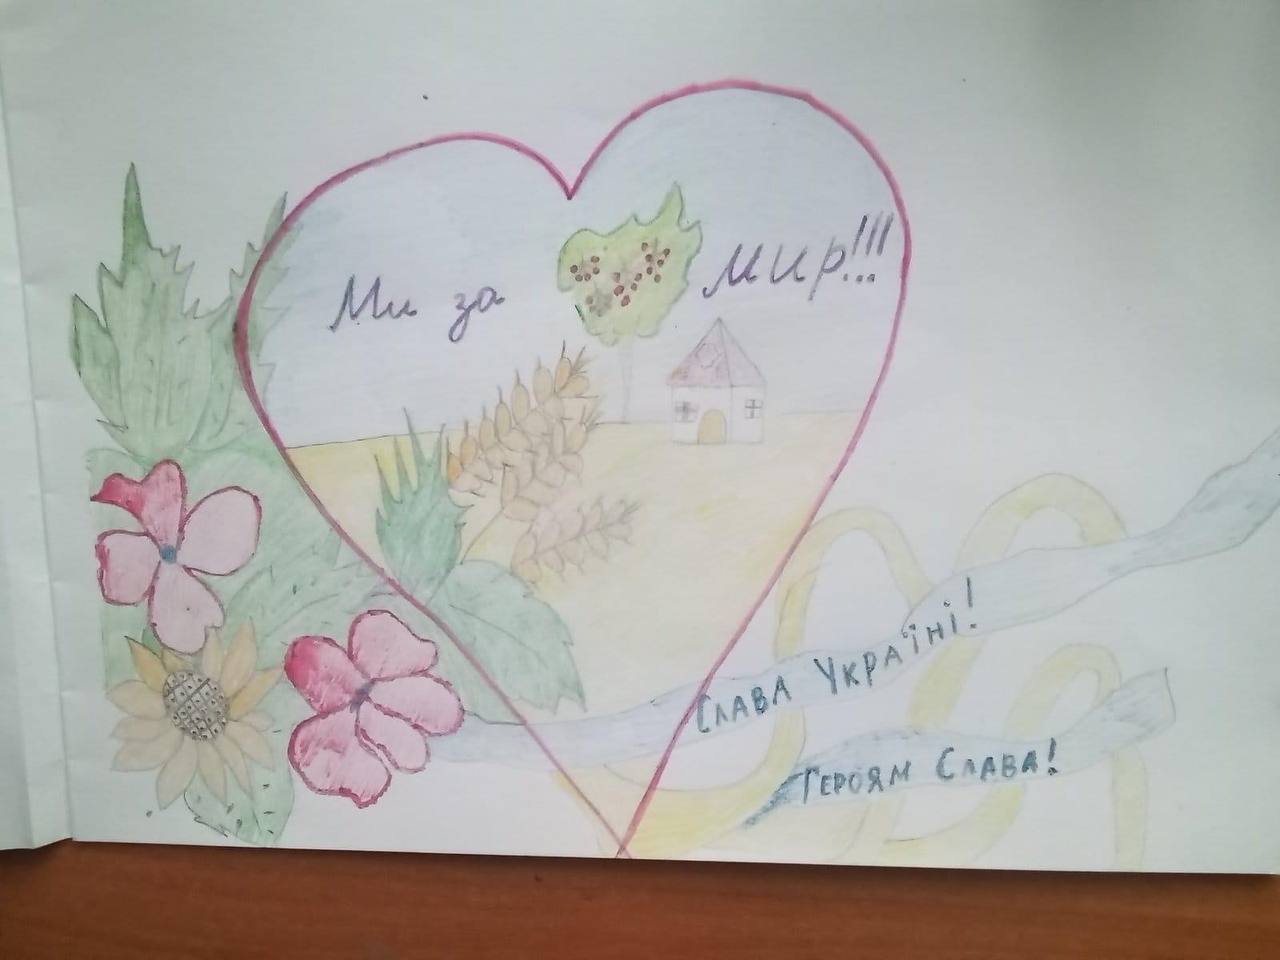 Ми за мир!!!
Слава Україні!
Героям Слава!